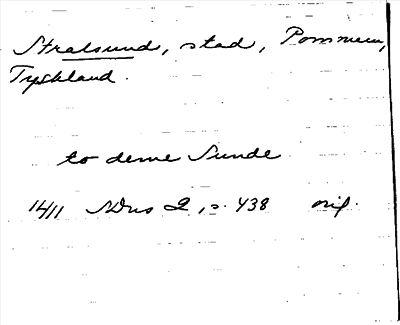 Stralsund, stad, Pommern,
Tyskland.
to deme Sunde
1411 SDns 2, s. 438 orig.